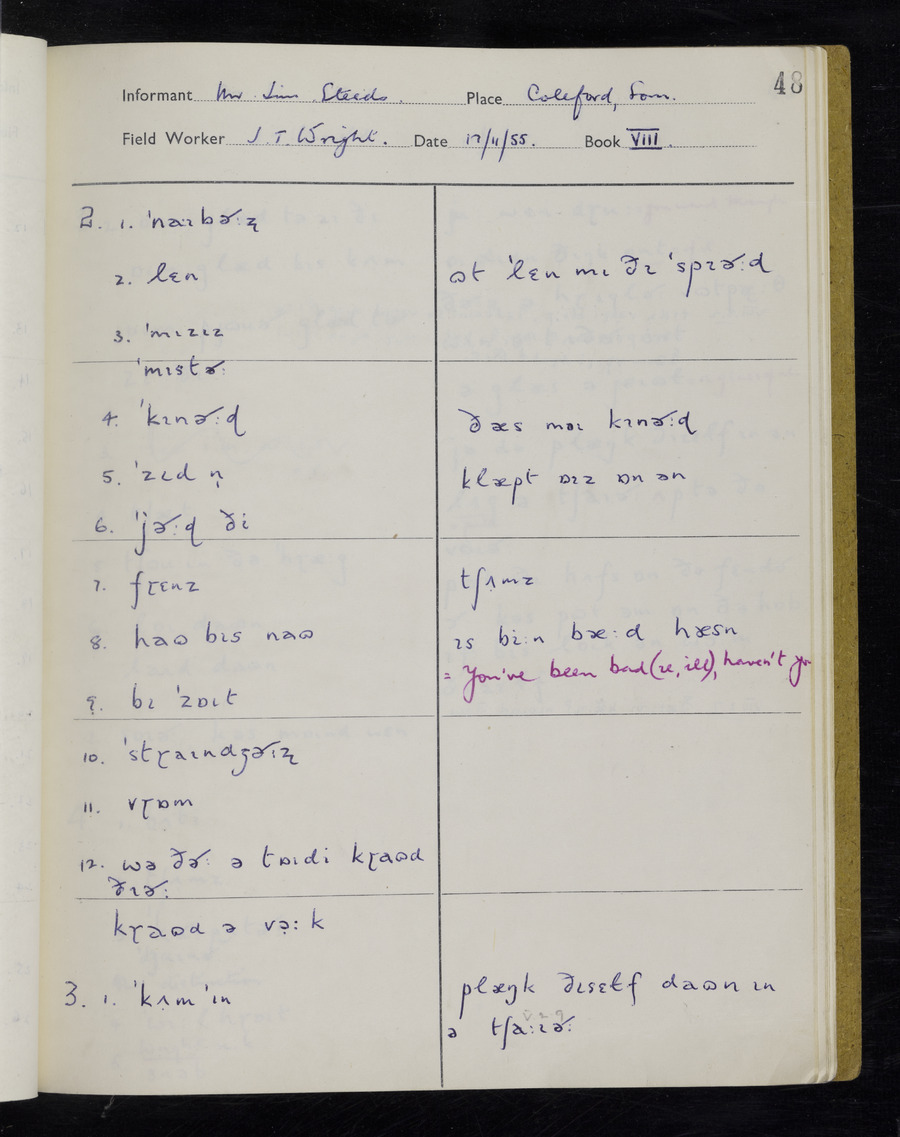 48
Informant Mr Jim Steeds. Place Coleford, Som.
Field Worker J. T. Wright. Date 17/11/55. Book VIII.
2. 1. ˈnaɪbɚːɀ
2. lɛn ɷt ˈlɛn mɪ ðɪ ˈspɪɚːd
3. ˈmɪzɪz
ˈmɪstɚː
4. ˈkɪnɚːɖ ðæs mɒɪ kɪnɚːɖ
5. ˈzɪd n̩ klæpt ɒɪz ɒn ən
6. ˈjɚːɖ ði
7. fɽɛnz tʃʌmz
8. haɷ bɪs naɷ ɪs bɪːn bæːd hæsn
= You've been bad (ie, ill), haven't you
9. bɪ ˈzɒɪt
10. ˈstɽaɪndʒɚːɀ
11. vɽɒm
12. wə ðɚː ə tɒɪdi kɽaɷd
ðɪɚː
kɽaɷd ə vəːk
3. 1. ˈkʌm ˈɪn plæŋk ðɪsɛɫf daɷn ɪn
ə tʃaːɪɚː